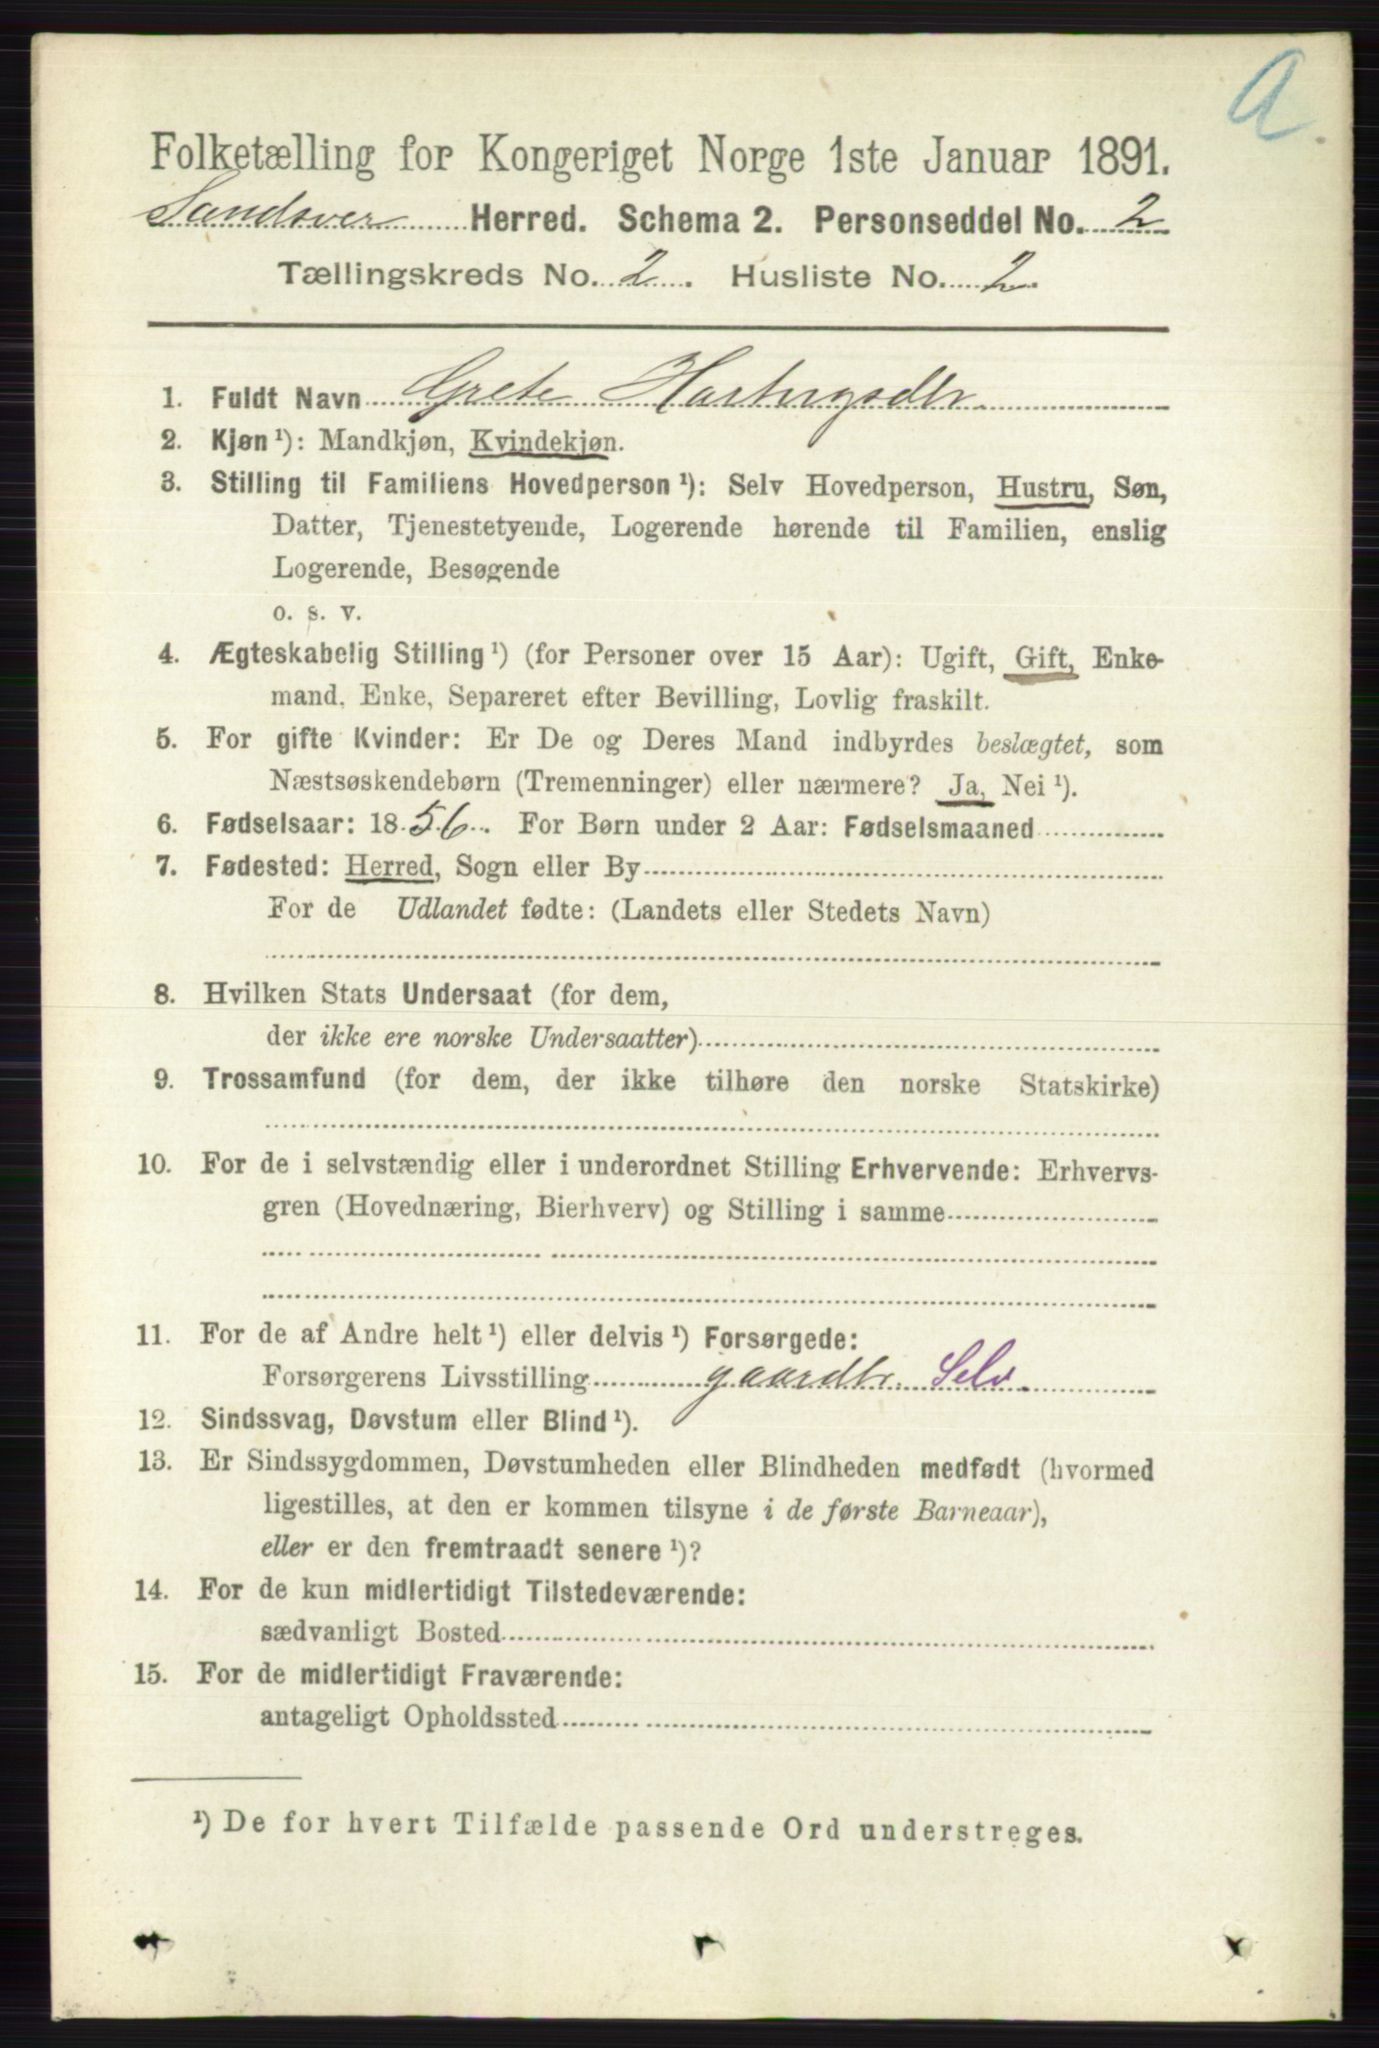 A.
Folketælling for Kongeriget Norge 1ste Januar 1891.
Sandsver Herred. Schema 2. Personseddel No. 2
Tællingskreds No. 2. Husliste No. 2.
1. Fuldt Navn Grete
2. Kjøn ¹): Mandkjøn, Kvindekjøn.
3. Stilling til Familiens Hovedperson ¹): Selv Hovedperson, Hustru, Søn,
Datter, Tjenestetyende, Logerende hørende til Familien, enslig
Logerende, Besøgende
o. s. v.
4. Ægteskabelig Stilling ¹) (for Personer over 15 Aar): Ugift, Gift, Enke-
mand, Enke, Separeret efter Bevilling, Lovlig fraskilt.
5. For gifte Kvinder: Er De og Deres Mand indbyrdes beslægtet, som
Næstsøskendebørn (Tremenninger) eller nærmere? Ja, Nei ¹).
6. Fødselsaar: 1856. For Børn under 2 Aar: Fødselsmaaned
7. Fødested: Herred, Sogn eller By
For de Udlandet fødte: (Landets eller Stedets Navn)
8. Hvilken Stats Undersaat (for dem,
der ikke ere norske Undersaatter)
9. Trossamfund (for dem, der ikke tilhøre den norske Statskirke)
10. For de i selvstændig eller i underordnet Stilling Erhvervende: Erhvervs-
gren (Hovednæring, Bierhverv) og Stilling i samme
11. For de af Andre helt ¹) eller delvis ¹) Forsørgede:
Forsørgerens Livsstilling gaardbr. Selv.
12. Sindssvag, Døvstum eller Blind ¹).
13. Er Sindssygdommen, Døvstumheden eller Blindheden medfødt (hvormed
ligestilles, at den er kommen tilsyne i de første Barneaar),
eller er den fremtraadt senere ¹)?
14. For de kun midlertidigt Tilstedeværende:
sædvanligt Bosted
15. For de midlertidigt Fraværende:
antageligt Opholdssted
¹) De for hvert Tilfælde passende Ord understreges.